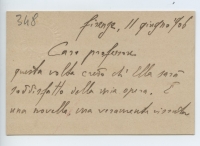 348
Firenze, 11 giugno 906
Caro professore
questa volta credo ch' Ella sarà
soddisfatto della mia opera. È
una novella, una veramente